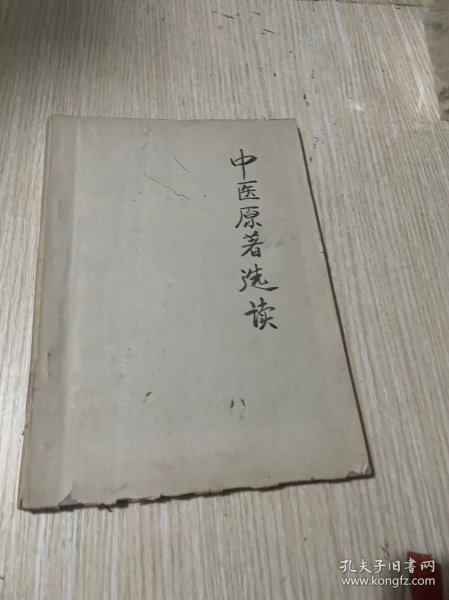 中医原著选读
孔夫子旧书网
www.kongfz.com